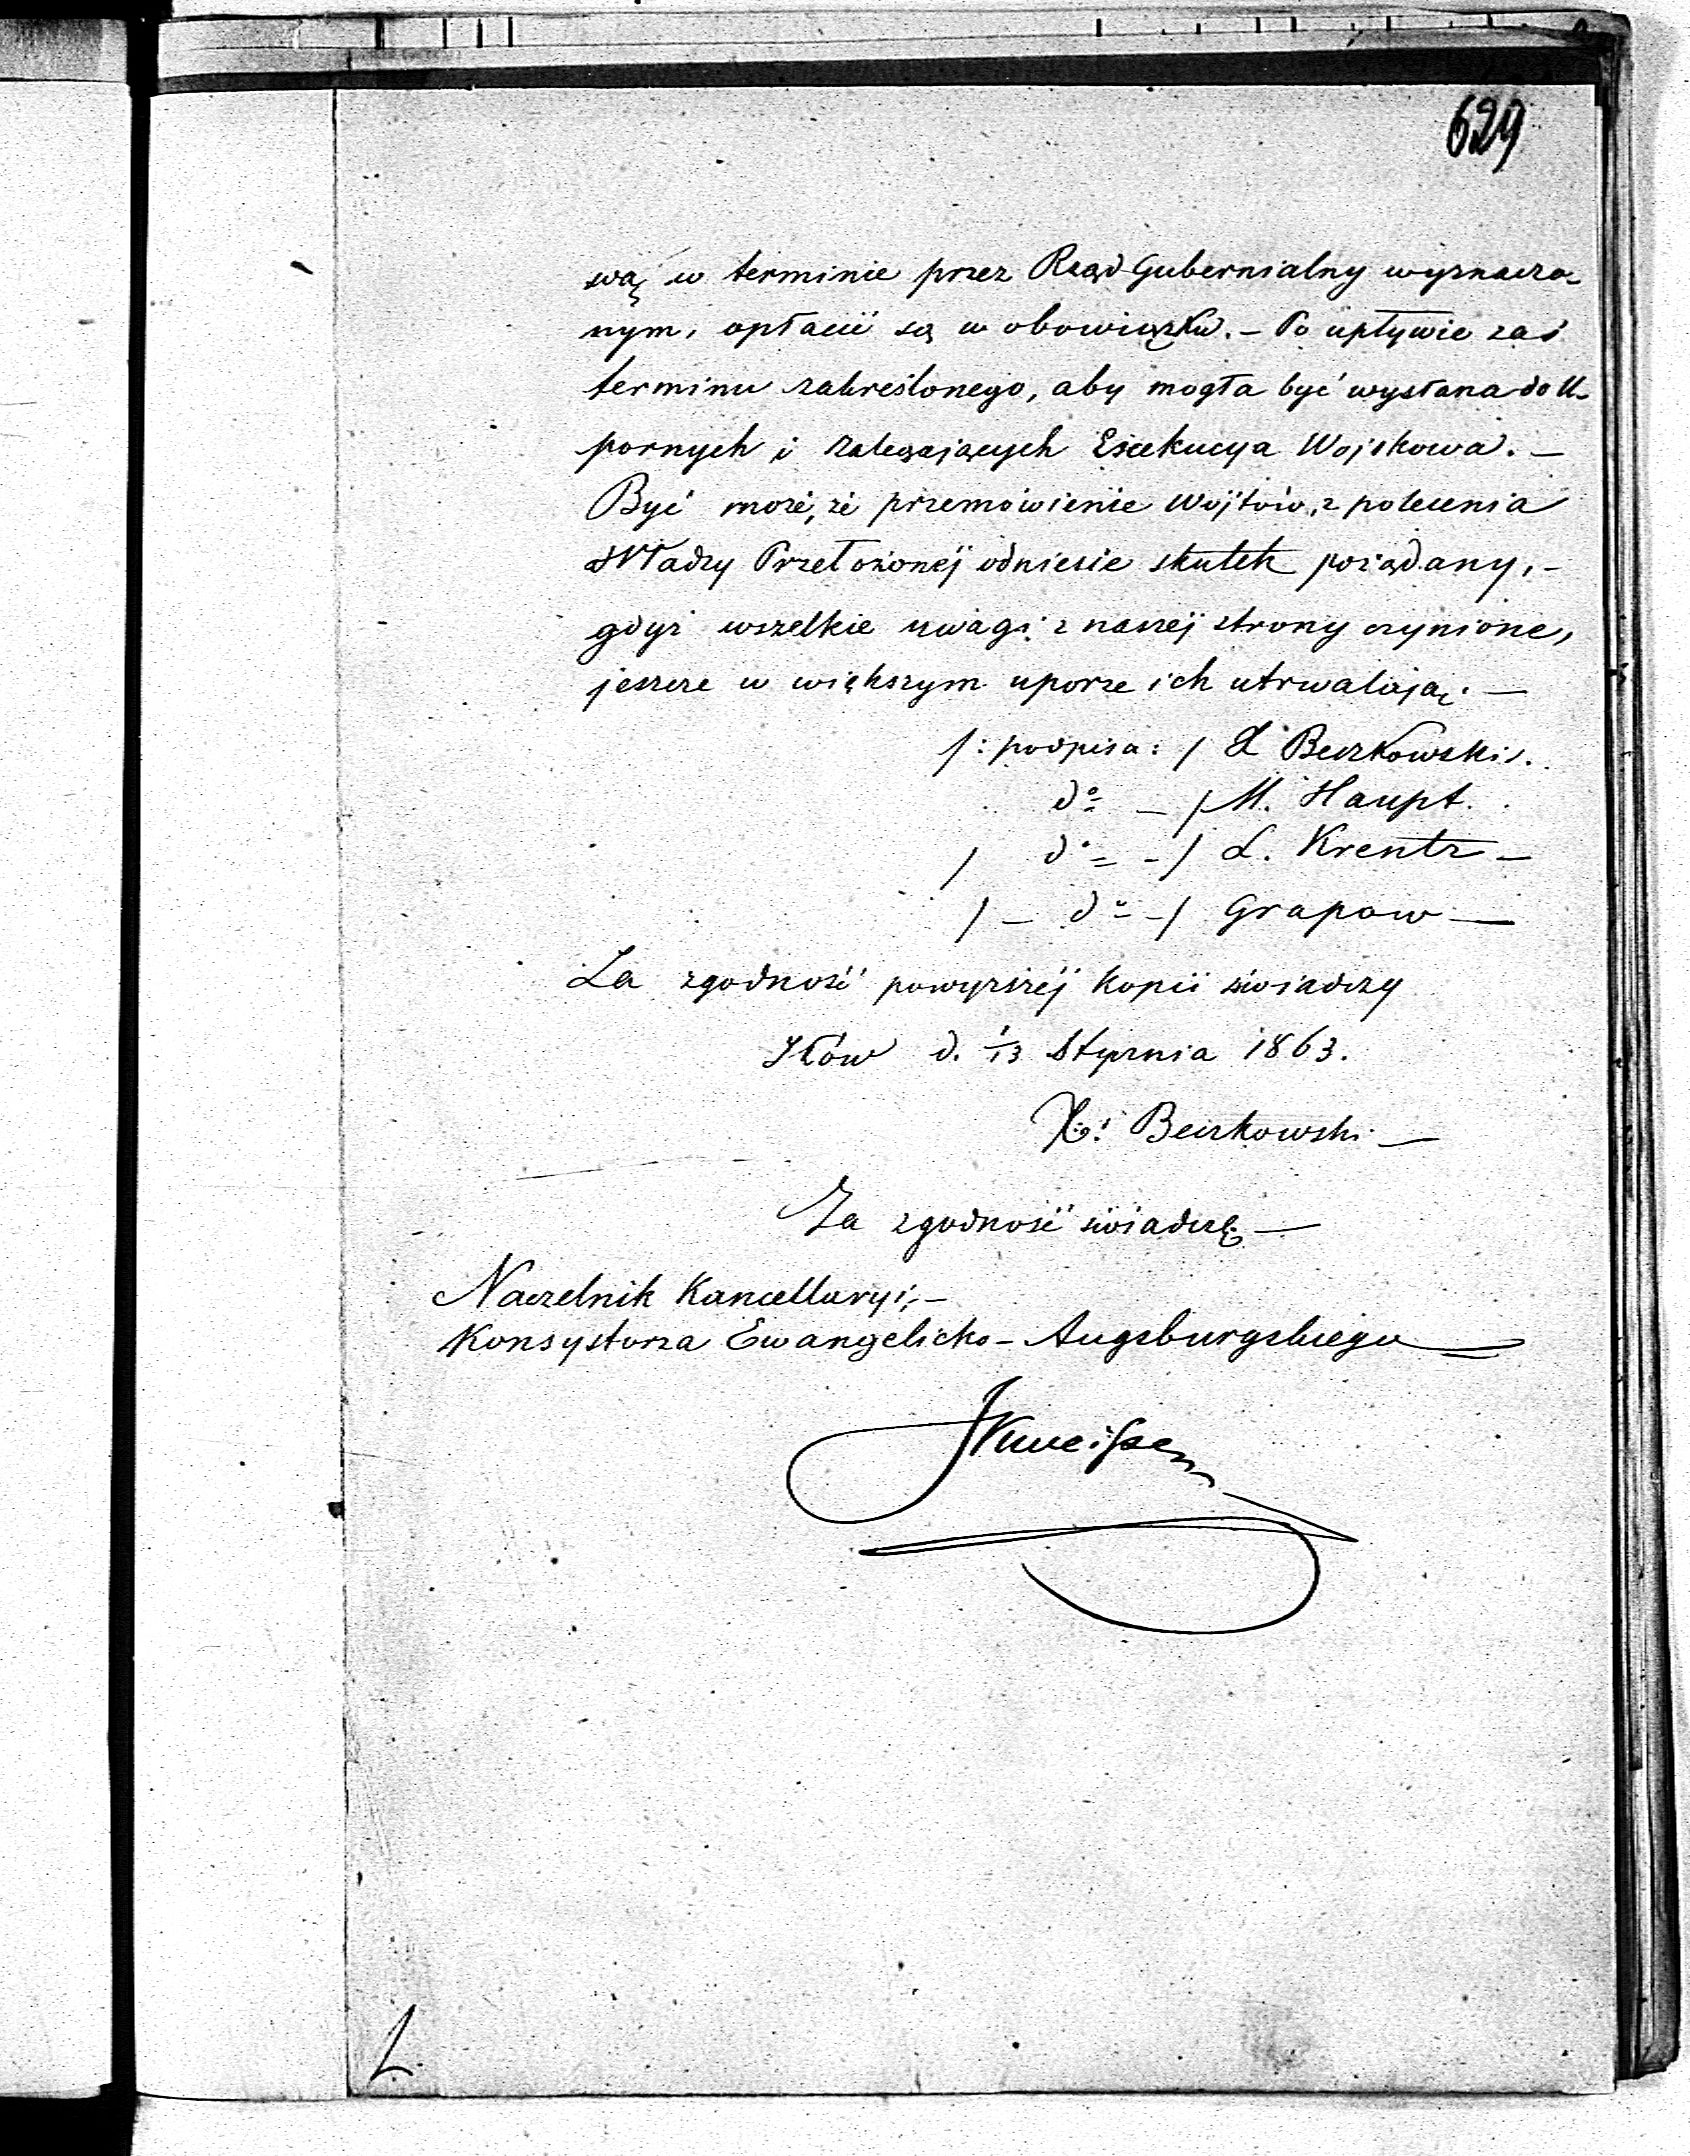 629
wą w terminie przez Rząd Gubernialny wyznaczo-
nym, opłacić są w obowiązku. – Po upływie zaś
terminu zakreślonego, aby mogła być wysłana do u-
pornych i zalegających Exekucya Wojskowa. –
Być może, że przemówienie Wójtów, z polecenia
Władzy Przełożonéj odniesie skutek pożądany, –
gdyż wszelkie uwagi z naszéj strony czynione,
jeszcze w większym uporze ich utrwalają. –
/: podpisa: / X Beczkowski.
do – / M. Haupt.
/ do – / L. Krentz –
/ – do – / Grapow –
Za zgodność powyższéj kopii świadczy
Iłów d. 1/13 Stycznia 1863.
X. Beczkowski –
Za zgodność świadczę –
Naczelnik Kancellaryi, –
Konsystorza Ewangelicko-Augsburgskiego